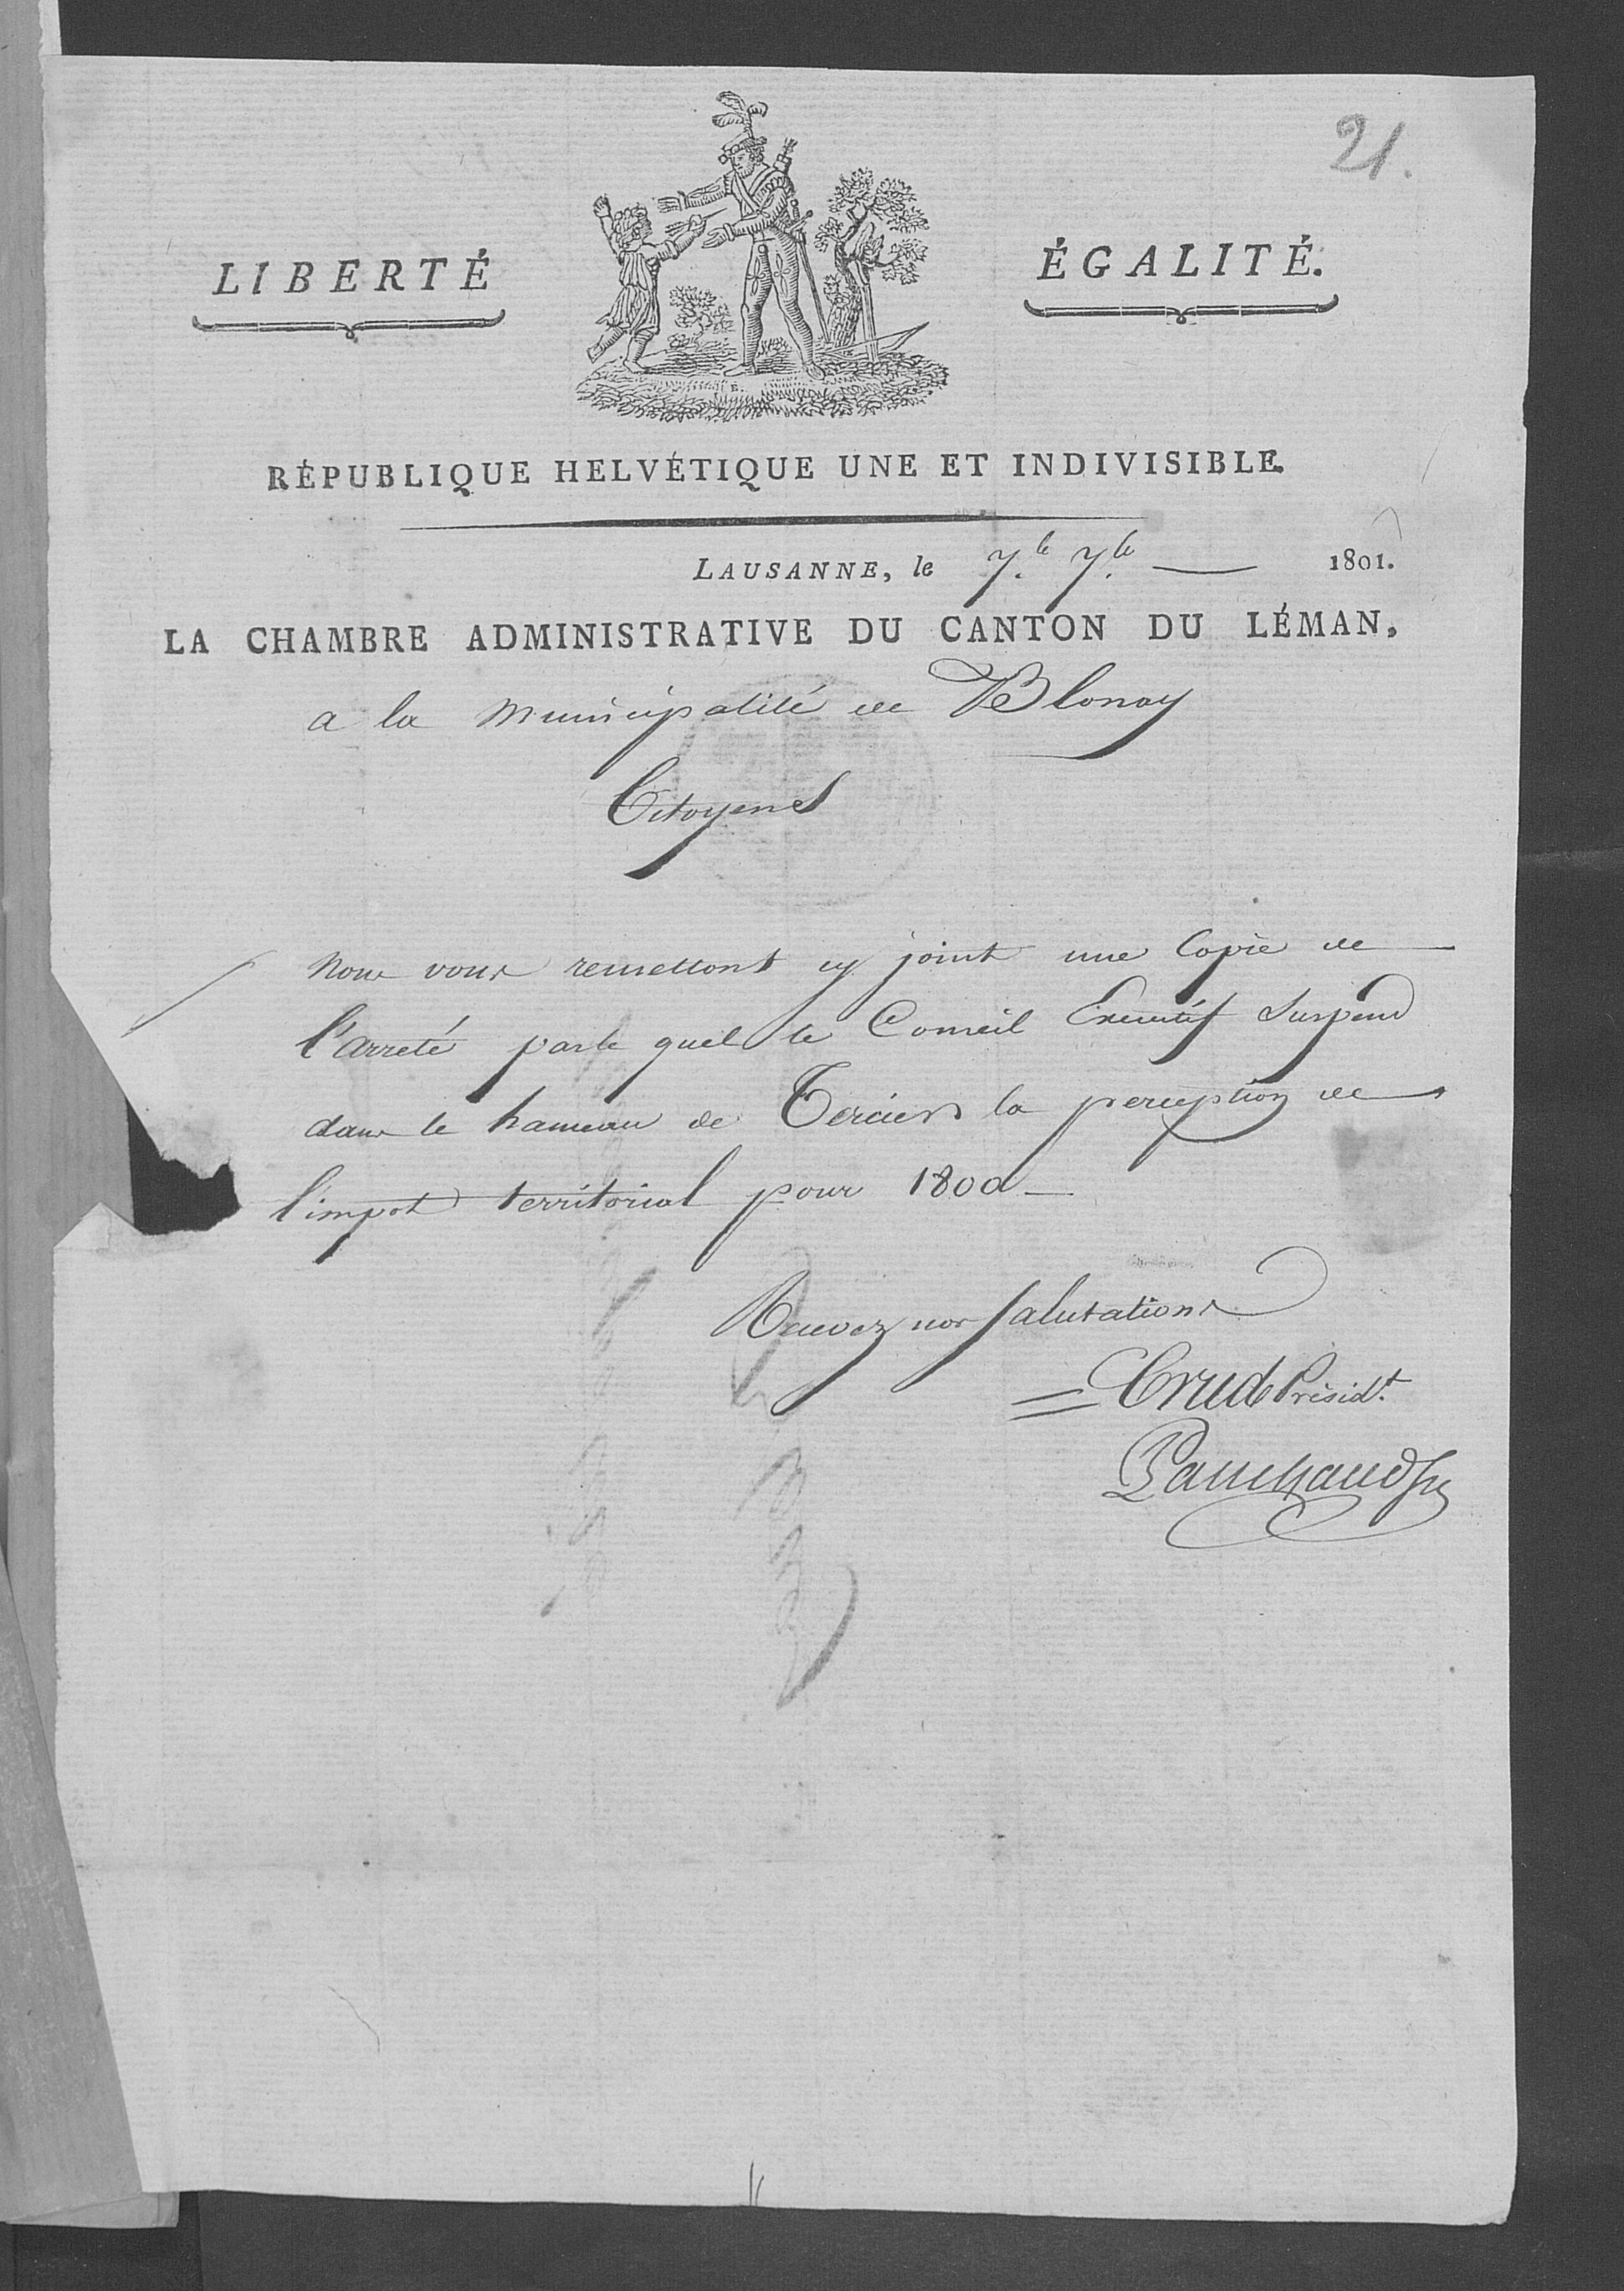 21.
LIBERTÉ
ÉGALITÉ.
RÉPUBLIQUE HELVÉTIQUE UNE ET INDIVISIBLE.
LAUSANNE, le 7.le 7.le — 1801.
LA CHAMBRE ADMINISTRATIVE DU CANTON DU LÉMAN,
a la Municipalité de Blonay
Citoyens
Nous vous remettons cy joint une Copie de
l'arreté par le quel le Conseil Executif Suspend
dans le hameau de Tercier la perception de
l'impot territorial pour 1800 —
Recevez nos salutations
= Crud Présidt.
Panchaud